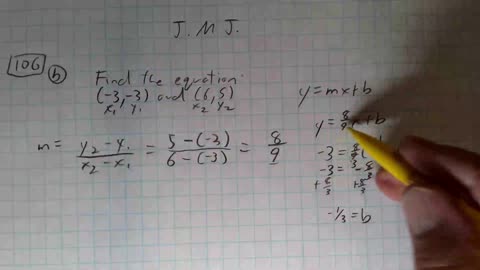 J.M.J.
106 b Find the equation:
(-3,-3) and (6,5)
x₁ y₁ x₂ y₂
m = y₂-y₁ / x₂-x₁ = 5-(-3) / 6-(-3) = 8/9
y=mx+b
y = 8/9x+b
-3 = 8/9(
-3 = -8/3
+8/3 +8/3
-1/3 = b